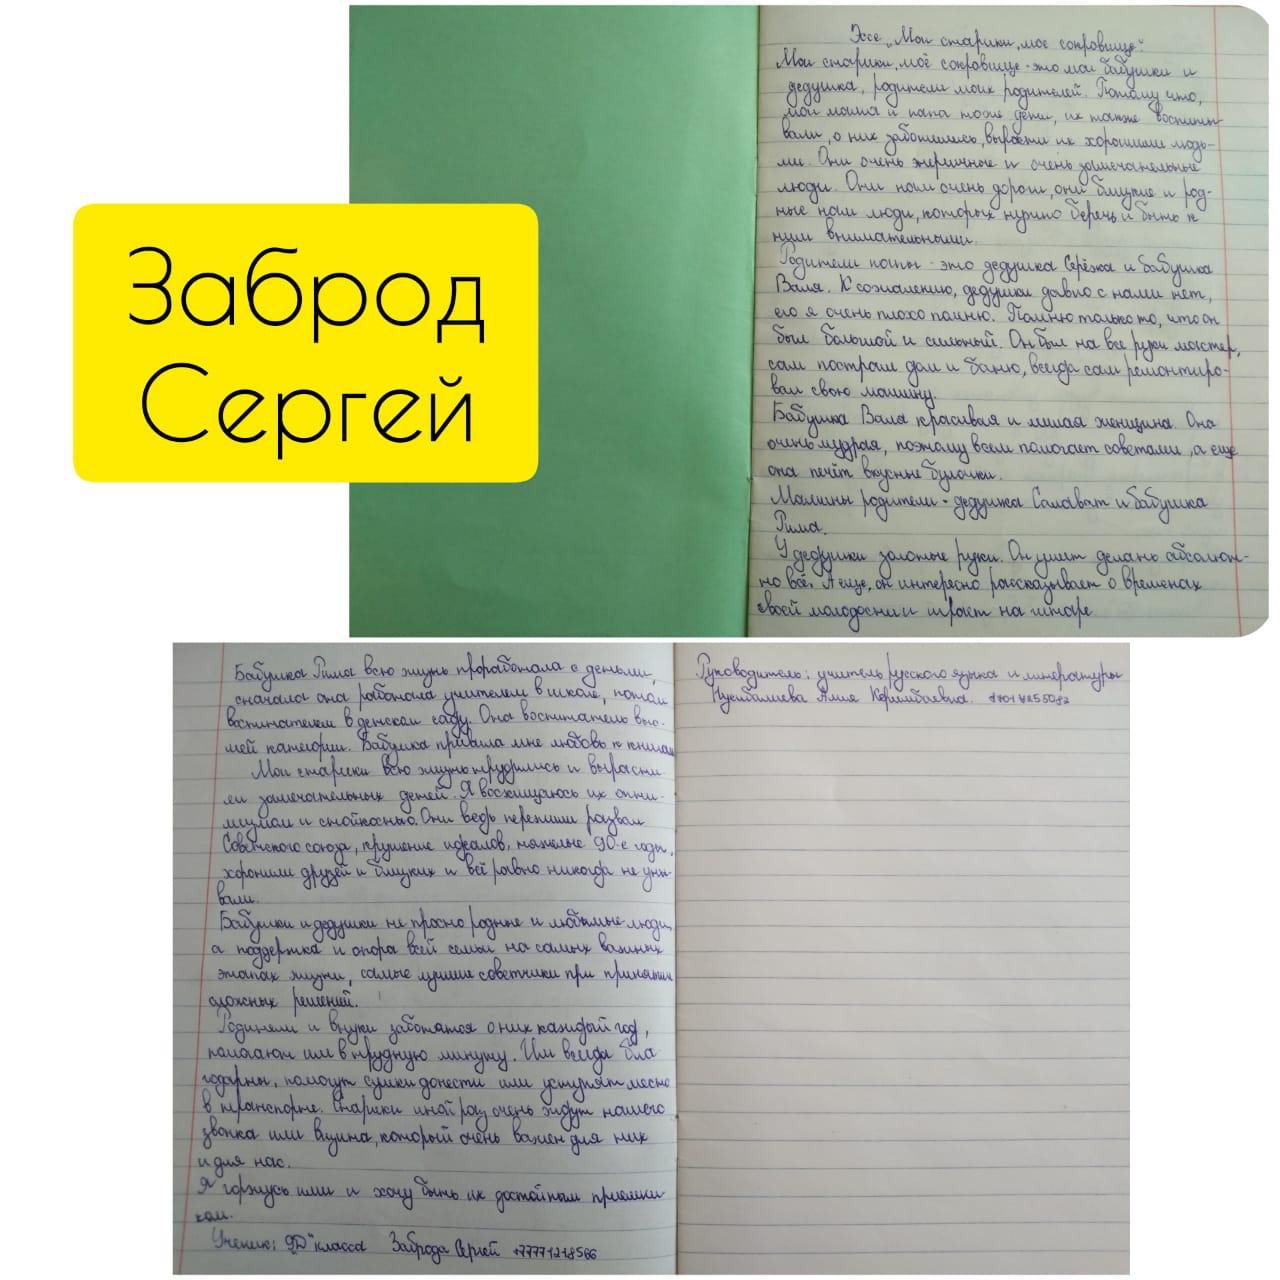 Заброд
Сергей
Эссе „Мои старики, мое сокровище“.
Мои старики, моё сокровище - это мои бабушки и
дедушка, родители моих родителей. Потому что,
мои мама и папа тоже дети, их также воспиты-
вали, о них заботились, вырастили их хорошими людь-
ми. Они очень энергичные и очень замечательные
люди. Они нам очень дороги, они близкие и род-
ные нам люди, которых нужно беречь и быть к
ним внимательными.
Родители папы - это дедушка Серёжа и бабушка
Валя. К сожалению, дедушки давно с нами нет,
его я очень плохо помню. Помню только то, что он
был большой и сильный. Он был на все руки мастер,
сам построил дом и баню, всегда сам ремонтиро-
вал свою машину.
Бабушка Валя красивая и милая женщина. Она
очень мудрая, поэтому всем помогает советами, а еще
она печёт вкусные булочки.
Мамины родители - дедушка Салават и бабушка
Рима.
У дедушки золотые руки. Он умеет делать абсолют-
но всё. А еще, он интересно рассказывает о временах
своей молодости и играет на гитаре.
Бабушка Рима всю жизнь проработала с детьми,
сначала она работала учителем в школе, потом
воспитателем в детском саду. Она воспитатель выс-
шей категории. Бабушка привила мне любовь к книгам
Мои старики всю жизнь трудились и вырасти-
ли замечательных детей. Я восхищаюсь их опти-
мизмом и стойкостью. Они ведь пережили развал
Советского союза, крушение идеалов, тяжелые 90-е годы,
хоронили друзей и близких и всё равно никогда не уны-
вали.
Бабушки и дедушки не просто родные и любимые люди,
а поддержка и опора всей семьи на самых важных
этапах жизни, самые лучшие советчики при принятии
сложных решений.
Родители и внуки заботятся о них каждый год,
помогают им в трудную минуту. Им всегда бла
годарны, помогут сумки донести или уступят место
в транспорте. Старики иной раз очень ждут нашего
звонка или визита, который очень важен для них
и для нас.
Я горжусь ими и хочу быть их достойным приемни
ком.
Ученик: 9„Д“ класса Заброда Сергей +77771218566
Руководитель: учитель русского языка и литературы
Алия Керимбаевна.